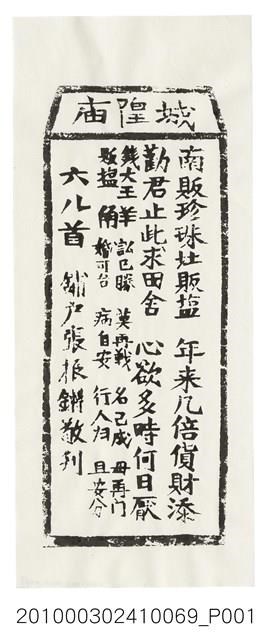 城隍庙
南販珍珠北販塩　年来几倍貨財添
勸君止此求田舍　心欲多時何日厭
錢大王　羊　訟已勝　莫再戰　名已成　毋再门
販塩　角　婚可合　病自安　行人归　且安分
六八首　鋪户張振鏘敬刋
201000302410069_P001